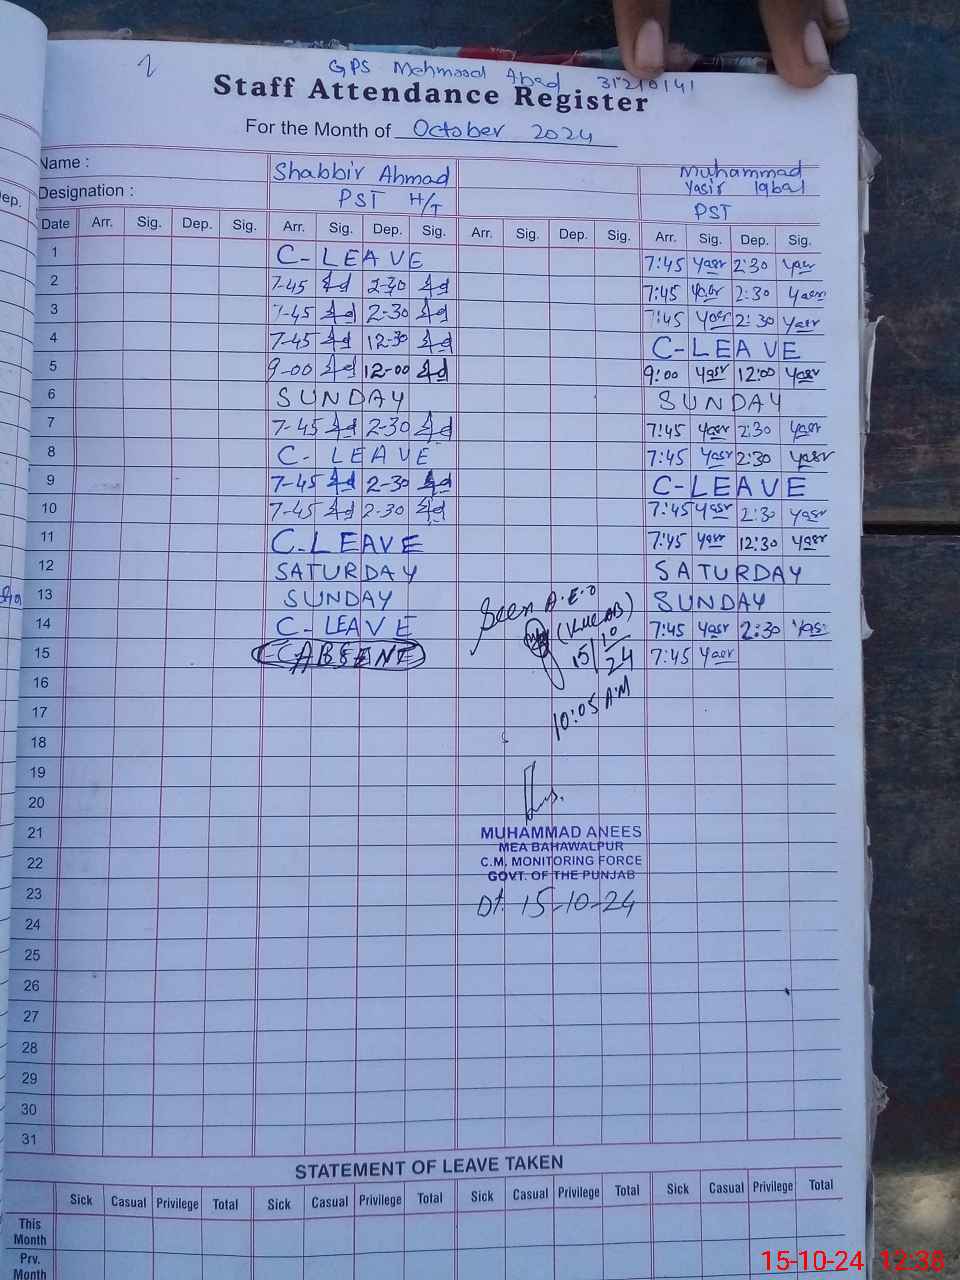 2
GPS Mehmood Abad 31210141
Staff Attendance Register
For the Month of October 2024
Name : Shabbir Ahmad Muhammad Yasir Iqbal
Designation : PST H/T PST
ep.
Date Arr. Sig. Dep. Sig. Arr. Sig. Dep. Sig. Arr. Sig. Dep. Sig. Arr. Sig. Dep. Sig.
1 C- LEAVE 7:45 Yasr 2:30 Yasr
2 7-45 2-30 7:45 Yasr 2:30 Yasr
3 7-45 2-30 7:45 Yasr 2:30 Yasr
4 7-45 12-30 C-LEAVE
5 9-00 12-00 9:00 Yasr 12:00 Yasr
6 SUNDAY SUNDAY
7 7-45 2-30 7:45 Yasr 2:30 Yasr
8 C- LEAVE 7:45 Yasr 2:30 Yasr
9 7-45 2-30 C-LEAVE
10 7-45 2-30 7:45 Yasr 2:30 Yasr
11 C.LEAVE 7:45 Yasr 12:30 Yasr
12 SATURDAY SATURDAY
13 SUNDAY SUNDAY
14 C- LEAVE 7:45 Yasr 2:30 Yasr
15 7:45 Yasr
Seen A.E.O
15/10/24
10:05 A.M
16
17
18
19
20
21
22
23
24
25
26
27
28
29
30
31
MUHAMMAD ANEES
MEA BAHAWALPUR
C.M. MONITORING FORCE
GOVT. OF THE PUNJAB
Dt. 15-10-24
STATEMENT OF LEAVE TAKEN
Sick Casual Privilege Total Sick Casual Privilege Total Sick Casual Privilege Total Sick Casual Privilege Total
This Month
Prv. Month
15-10-24 12:38